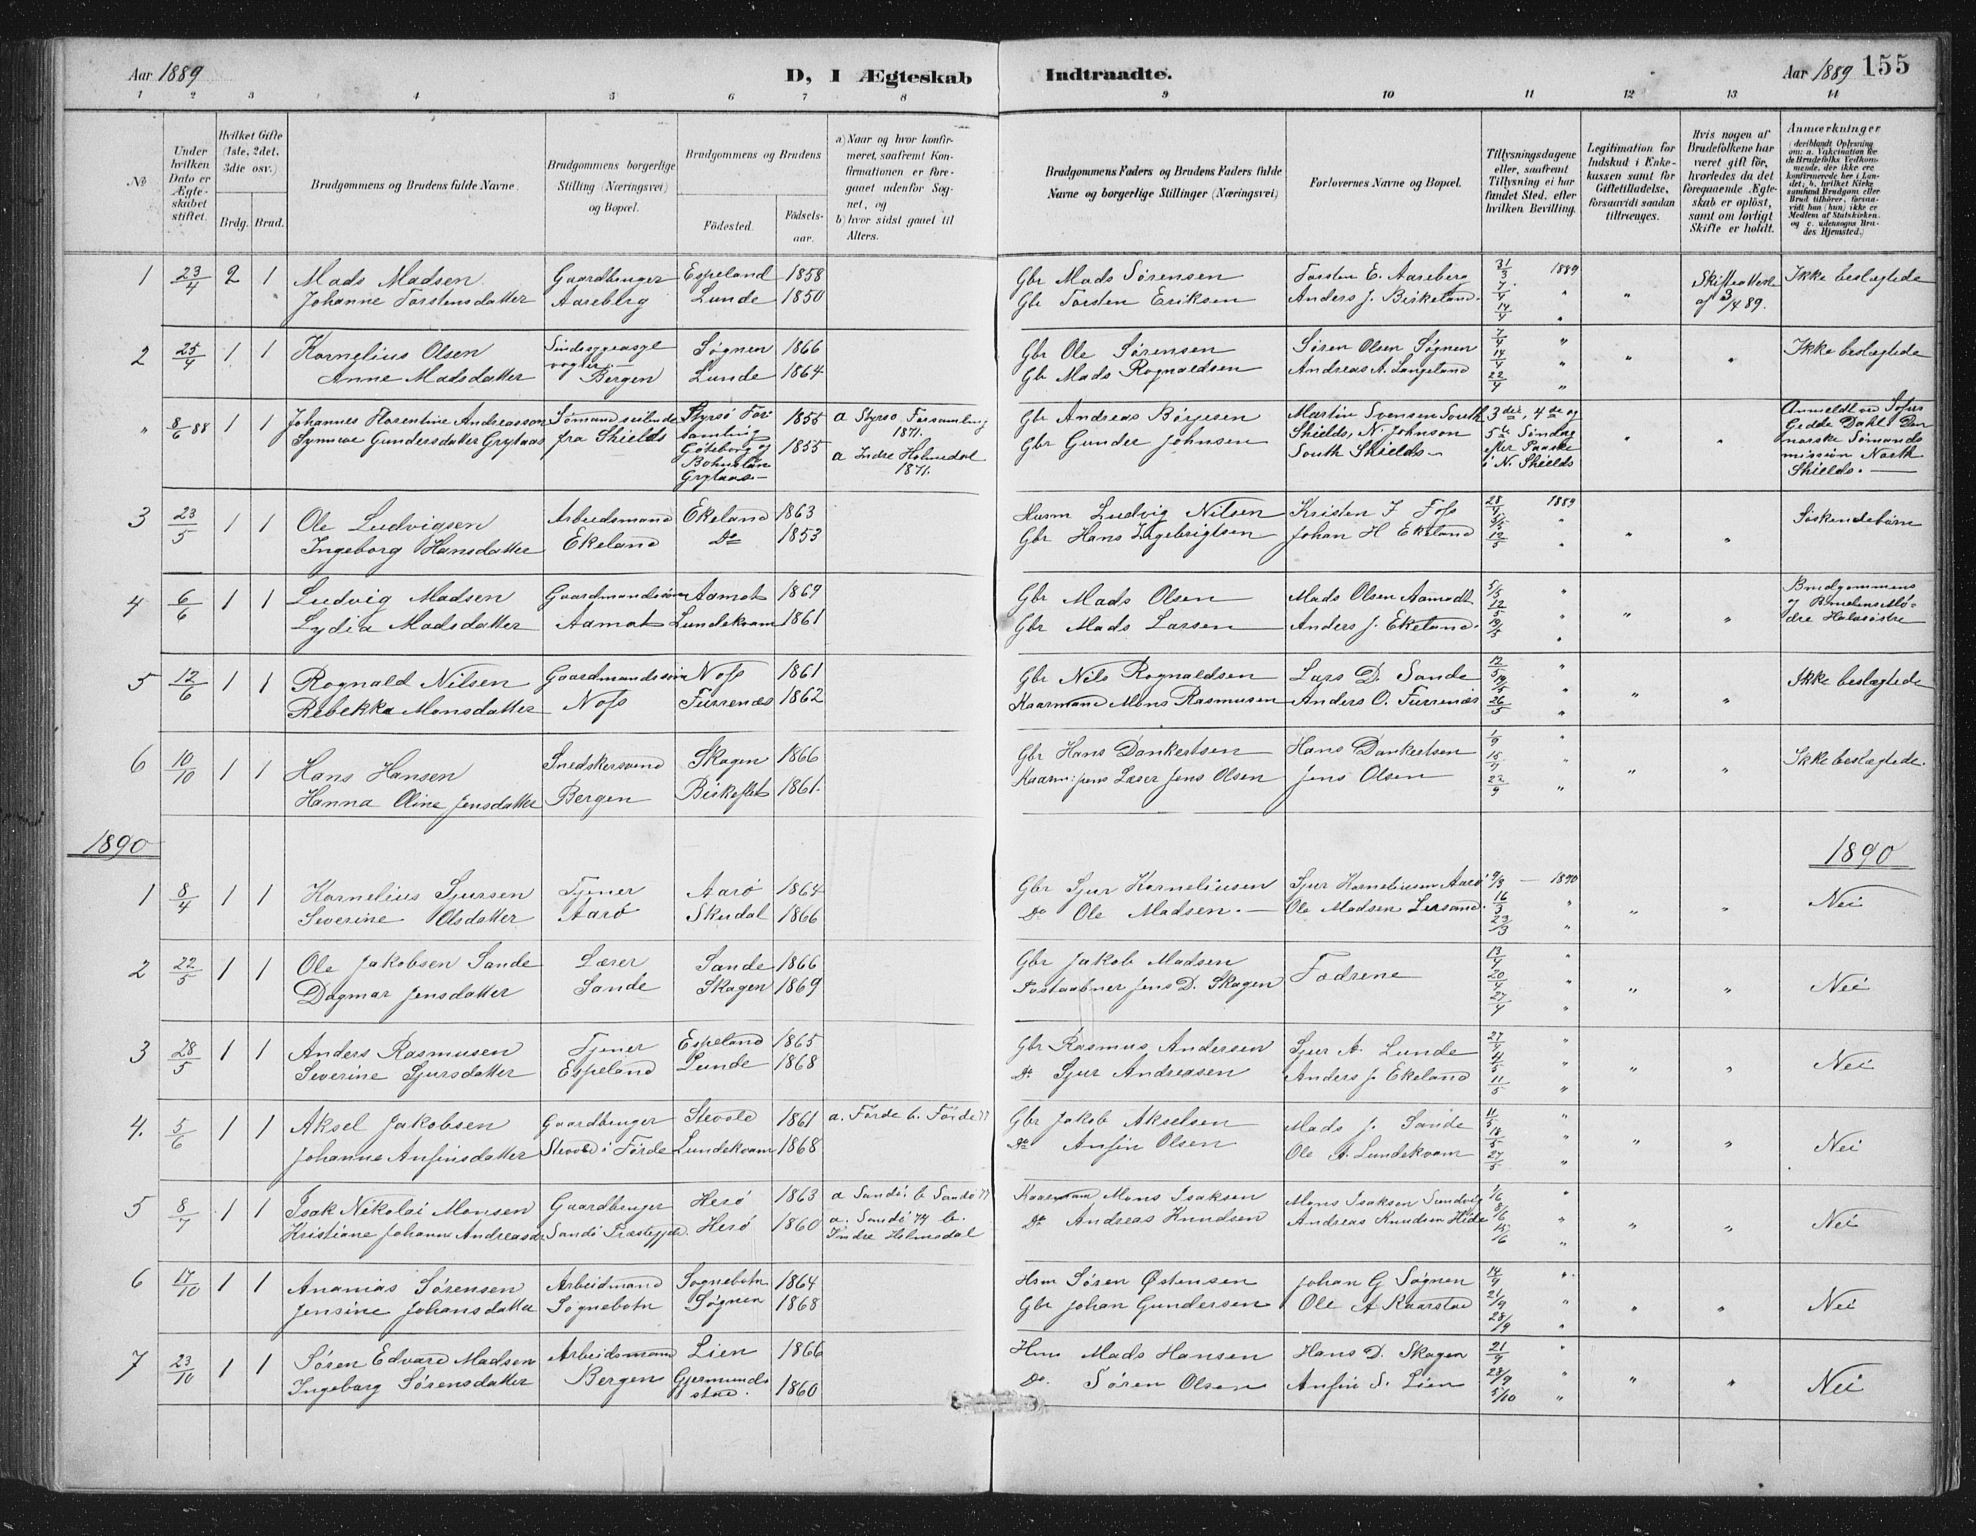 Aar 1889
D, I Ægteskab Indtraadte.
Aar 1889 155
1 2 3 4 5 6 7 8 9 10 11 12 13 14
No
Under hvilken Dato er Ægteskabet stiftet.
Hvilket Gifte (1ste, 2det, 3die osv.)
Brdg. Brud.
Brudgommens og Brudens fulde Navne.
Brudgommens borgerlige Stilling (Næringsvei) og Bopæl.
Brudgommens og Brudens
Fødested. Fødselsaar.
a) Naar og hvor konfirmeret, saafremt Konfirmationen er foregaaet udenfor Sognet, og
b) hvor sidst gaaet til Alters.
Brudgommens Faders og Brudens Faders fulde Navne og borgerlige Stillinger (Næringsvei)
Forlovernes Navne og Bopæl.
Tillysningsdagene eller, saafremt Tillysning ei har fundet Sted, efter hvilken Bevilling.
Legitimation for Indskud i Enkekassen samt for Giftetilladelse, forsaavidt saadan tiltrænges.
Hvis nogen af Brudefolkene har været gift før, hvorledes da det foregaaende Ægteskab er opløst, samt om lovligt Skifte er holdt.
Anmærkninger (deriblandt Oplysning om: a. Vakcination for de Brudefolks Vedkommende, der ikke ere konfirmerede her i Landet; b. hvilket Kirkesamfund Brudgom eller Brud tilhører, forsaavidt han (hun) ikke er Medlem af Statskirken, og c. udensogns Brudes Hjemsted.)
1 23/4 2 1 Mads Madsen Gaardbruger Espeland 1858 Gbr Mads Sørensen Torsten E. Aareberg 31/3 1889 Skifteattest Ikke beslægtede
Johanne Torstensdatter Aareberg Lunde 1850 Gbr Torsten Eriksen Anders J. Birkeland 7/4 " " af 3/4 89.
14/4 "
2 25/4 1 1 Kornelius Olsen Sindssygeasyl Søgnen 1866 Gbr Ole Sørensen Søren Olsen Søgnen 7/4 " Ikke beslægtede
Anne Madsdatter vogter Bergen Lunde 1864 Gbr Mads Rognaldsen Andreas A. Langeland 14/4 " " "
22/4 "
" 8/6 88 1 1 Johannes Florentine Andreasson Sømand seilende Styrsö För 1855 a Styrso Forsamling 1871. Gbr Andreas Börjesen Martin Svensen South 3die, 4de og Anmeldt ved
Synneve Gundersdatter Grytaas fra Shields samling Göteborg og Bohuslän Grytaas 1855 a Indre Holmedal 1871. Gbr Gunder Johnsen Shields, N. Johnson South Shields 5te Søndag efter Paaske i N. Shields " " Gedde Dahl Den norske Sømandsmission North Shields.
3 23/5 1 1 Ole Ludvigsen Arbeidsmand Ekeland 1863 Husm Ludvig Nilsen Kristen J Foss 28/4 1889 Søskendebørn
Ingeborg Hansdatter Ekeland Do 1853 Gbr Hans Ingebrigtsen Johan H Ekeland 5/5 " " "
12/5 "
4 6/6 1 1 Ludvig Madsen Gaardmandssøn Aamot 1869 Gbr Mads Olsen Mads Olsen Aamodt 5/5 " Brudgommens
Lydia Madsdatter Aamot Lundekvam 1861 Gbr Mads Larsen Anders J. Ekeland 12/5 " " og Brudens Mødre Halvsøstre
19/5 "
5 12/6 1 1 Rognald Nilsen Gaardmandssøn Noss 1861 Gbr Nils Rognaldsen Lars D. Sande 12/5 " Ikke beslægtede
Rebekka Monsdatter Noss Furrenæs 1862 Kaarmand Mons Rasmusen Anders O. Furrenæs 19/5 " " "
26/5 "
6 10/10 1 1 Hans Hansen Snedkersvend Skagen 1866 Gbr Hans Dankertsen Hans Dankertsen 1/9 " Ikke beslægtede.
Hanna Oline Jensdatter Bergen 1861. Jens Olsen Jens Olsen 15/9 " " "
22/9 "
1890 1890
1 8/4 1 1 Kornelius Sjursen Tjener Aarø 1864 Gbr Sjur Korneliusen Sjur Korneliusen Aarø 9/3 — 1890 Nei
Severine Olsdatter Aarø Skudal 1866 Do Ole Madsen. — Ole Madsen 16/3 " " "
23/3 "
2 22/5 1 1 Ole Jakobsen Sande Lærer Sande 1866 Gbr Jakob Madsen Fædrene 13/4 " Nei
Dagmar Jensdatter Sande Skagen 1869 Postaabner Jens D. Skagen 20/4 " " "
27/4 "
3 28/5 1 1 Anders Rasmusen Tjener Espeland 1865 Gbr Rasmus Andersen Sjur A. Lunde 27/4 " Nei
Severine Sjursdatter Espeland Lunde 1868 Do Sjur Andreasen Anders J. Ekeland 4/5 " " "
11/5 "
4. 5/6 1 1 Aksel Jakobsen Gaardbruger Stevold 1861 a. Førde b. Førde Gbr Jakob Akselsen Mads J. Sande 11/5 " Nei
Johanne Anfinsdatter Stevold i Førde Lundekvam 1868 Do Anfin Olsen Ole A. Lundekvam 18/5 " " "
27/5 "
5 8/7 1 1 Isak Nikolai Monsen Gaardbruger Herø 1863 a Sandø; b Sandø Kaarmand Mons Isaksen Mons Isaksen Sandvig 1/6 " Nei
Kristiane Johanne Andreasdr Sandø Herø 1860 a. Sandø 74 b. Indre Holmedal Do Andreas Knudsen Andreas Knudsen Hide 8/6 " " "
15/6 "
6 17/10 1 1 Ananias Sørensen Arbeidmand Sognebotn 1864 Hsm Søren Østensen Johan G Søgnen 14/9 " Nei
Jensine Johansdatter Søgnebotn Søgnen 1868 Gbr Johan Gundersen Ole A Kaarstad 21/9 " " "
28/9
7 23/10 1 1 Søren Edvard Madsen Arbeidsmand Lien 1866 Hsm Mads Hansen Hans D. Skagen 21/9 " Nei
Ingeborg Sørensdatter Bergen Gjermundstad. 1860 Do. Søren Olsen Anfin S. Lien 28/9 " " "
5/10 "